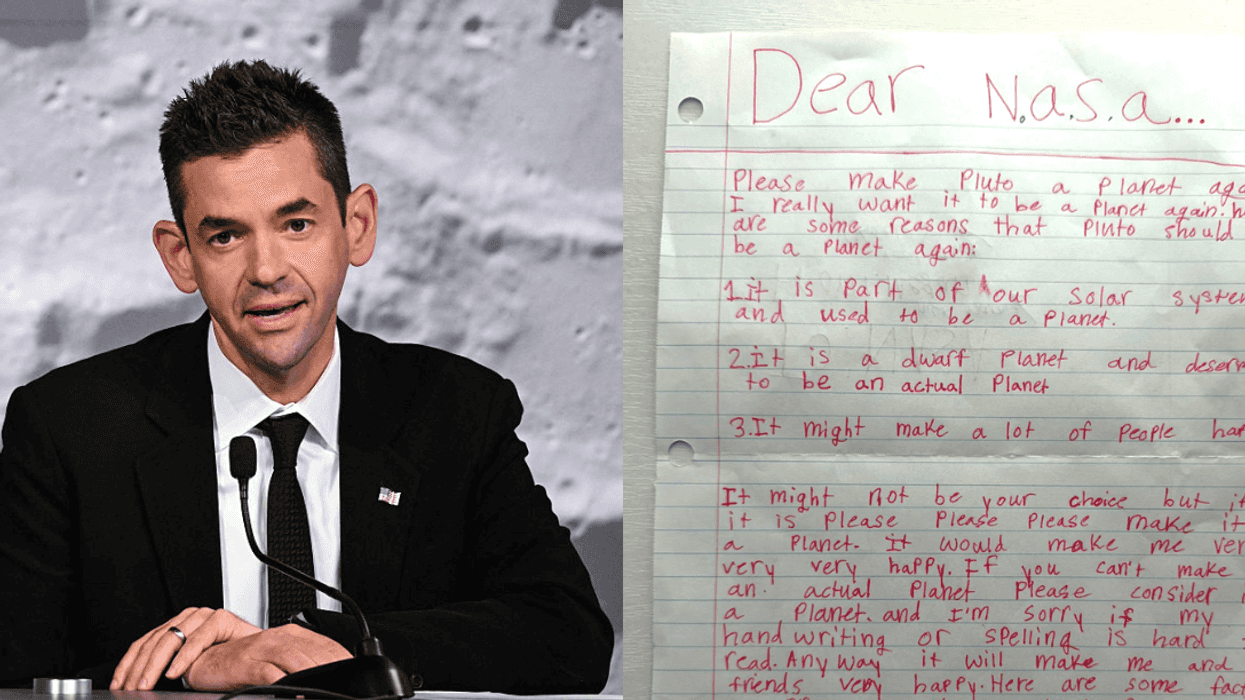 Dear N.a.S.a...
Please make Pluto a Planet
I really want it to be a Planet again.
are some reasons that Pluto should
be a Planet again:
1.it is part of our Solar
and used to be a Planet.
2.It is a dwarf Planet and
to be an actual Planet
3.It might make a lot of People
It might not be your choice but
it is Please Please Please make it
a Planet. it would make me
very very happy. If you can't make
an actual Planet Please consider
a Planet. and I'm sorry if my
hand writing or spelling is hard
read. Any way it will make me and
friends very happy. Here are some